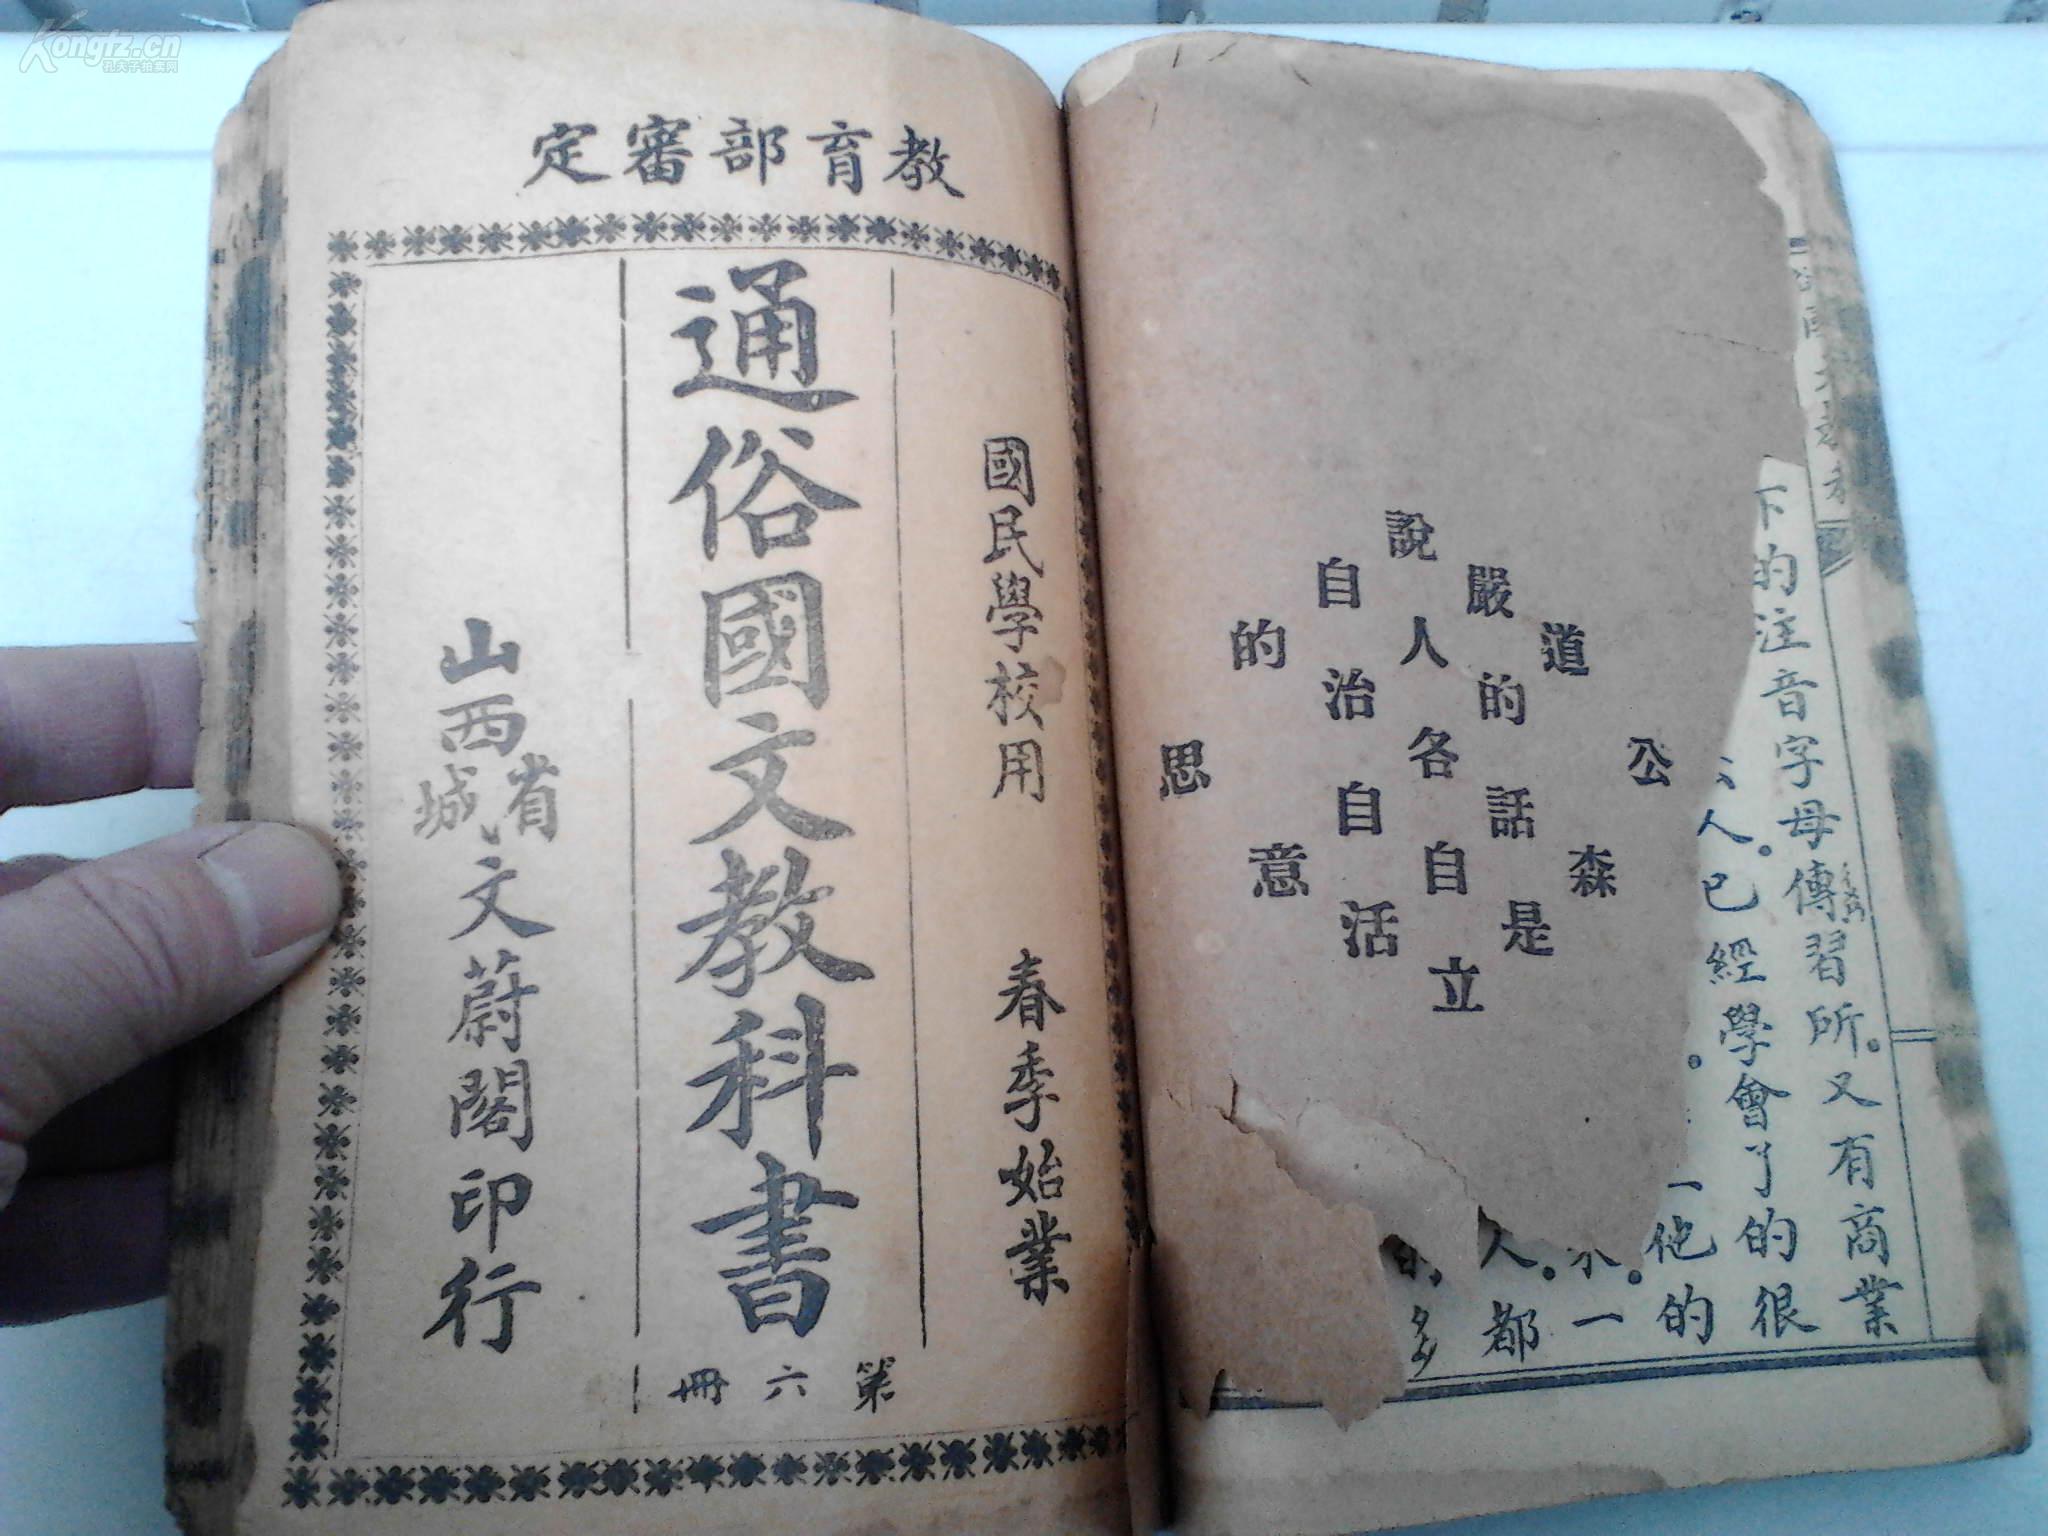 Kongfz.cn
孔夫子拍卖网
教育部審定
國民學校用 春季始業
通俗國文教科書
第六冊
山西省城文蔚閣印行
公
道森
嚴的話是
說人各自立
自治自活
的意
思
下的注音字母傳習所。又有商業
人。已經學會了的很
一他的
一
人。都